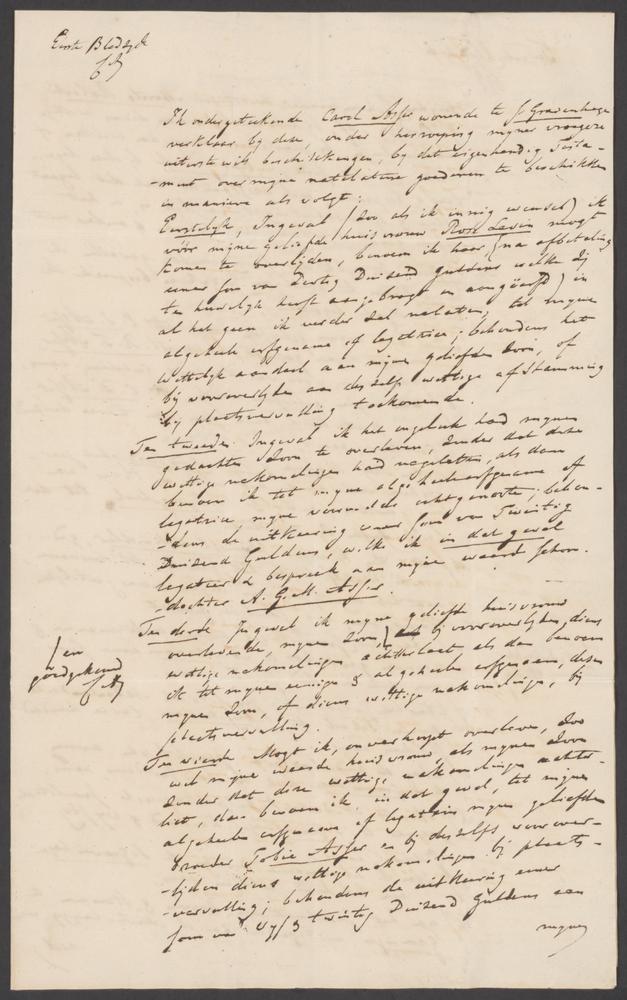 Eerste Bladzyde
CA
Ik ondergeteekende Carel Asser wonende te s'Gravenhage
verklaar by deze, onder herroeping myner vroegere
uiterste wils beschikkingen, by dit eigenhandig Testa-
-ment over myne natelatene goederen te beschikken
in manieren als volgt:
Eerstelyk, Ingeval (zoo als ik innig wensch) ik
vóór myne geliefde huisvrouw Rose Levin mogt
komen te overlyden, benoem ik haar (na aftrekking
eener som van dertig Duizend guldens welke zy
ten huwelyk heeft aangebragt en aangeerfd) in
al het geen ik verder zal nalaten, tot myne
algeheele erfgename of legatrice; behoudens het
wettelyk aandeel aan mynen geliefden zoon, of
bij vooroverlyden aan deszelfs wettige afstamming
by plaatsvervulling toekomende.
Ten tweede. Ingeval ik het ongeluk had mynen
gedachten zoon te overleven, zonder dat deze
wettige nakomelingen had nagelaten, als dan
benoem ik tot myne algeheele erfgename of
legatrice myne voornoemde echtgenoote; behou-
-dens de uitkeering eener som van Twintig
Duizend Guldens, welke ik in dat geval
legateer & bespreek aan myne waarde schoon-
-dochter A. G. M. Asser.
Ten derde Ingeval ik myne geliefde huisvrouw
overleefde, mynen zoon, bij vooroverlyden, diens
wettige nakomelingen achterlaat als dan benoem
ik tot mynen eenigen & algeheele erfgenaam, dezen
mynen zoon, of diens wettige nakomelingen, by
plaatsvervulling.
/ en
goedgekeurd
CA
Ten vierde Mogt ik, onverhoopt overleven, zoo
wel myne waarde huisvrouw, als mynen zoon
zonder dat deze wettige nakomelingen achter-
liet, dan benoem ik in dat geval, tot mynen
algeheele erfgenaam of legataris mynen geliefden
broeder Tobie Asser en bij deszelfs voorover-
-lyden diens wettige nakomelingen by plaats-
-vervulling; behoudens de uitkeering eener
som van vyf & twintig Duizend Guldens aan
myne